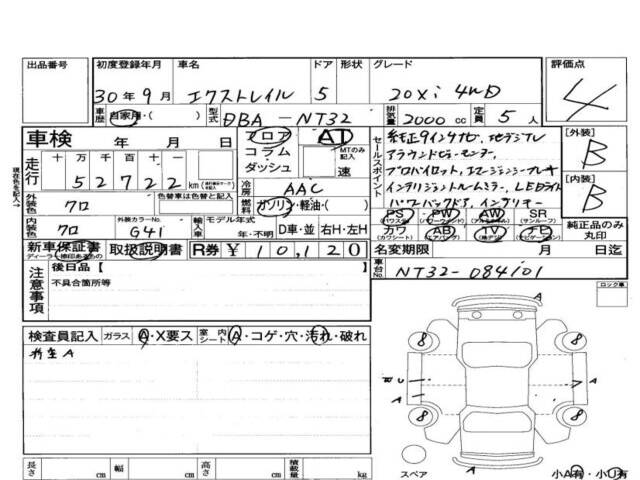 出品番号 初度登録年月 車名 ドア 形状 グレード 評価点
30年9月 エクストレイル 5 20Xi 4WD 4
車歴 自家用・( ) 型式 DBA-NT32 排気量 2000cc 定員 5人
車検 年 月 日 フロア AT
コラム MTのみ記入
ダッシュ 速
走行 十万 万 千 百 十 一
5 2 7 2 2 km
セールスポイント 純正9インチナビ、地デジTV
アラウンドビューモニター
プロパイロット、エマージェンシーブレーキ
インテリジェントルームミラー、LEDライト
パワーバックドア、インテリキー
[外装] B
[内装] B
外装色 クロ 色替車は色替と記入
冷房 AAC
燃料 ガソリン・軽油・( )
PS (パワステ) PW (パワーウィンドウ) AW (アルミホイール) SR (サンルーフ)
カワ (カワシート) AB (エアバッグ) TV (地デジ) ナビ (ナビゲーション)
純正品のみ丸印
内装色 クロ 外装カラーNo. G41 輸入車 モデル年式 年・不明 D車・並 右H・左H
新車保証書 取扱説明書 R券 ¥10,120 名変期限 月 日迄
車台No. NT32-084101
注意事項 後日品【
不具合箇所等
ロック車
検査員記入 ガラス A・X要ス 室内シート A・コゲ・穴・汚れ・破れ
A
8 8
A A
8 8
A
スペア
小A有・小U有
長さ cm 幅 cm 高さ cm 積載量 kg
現在色を記入→